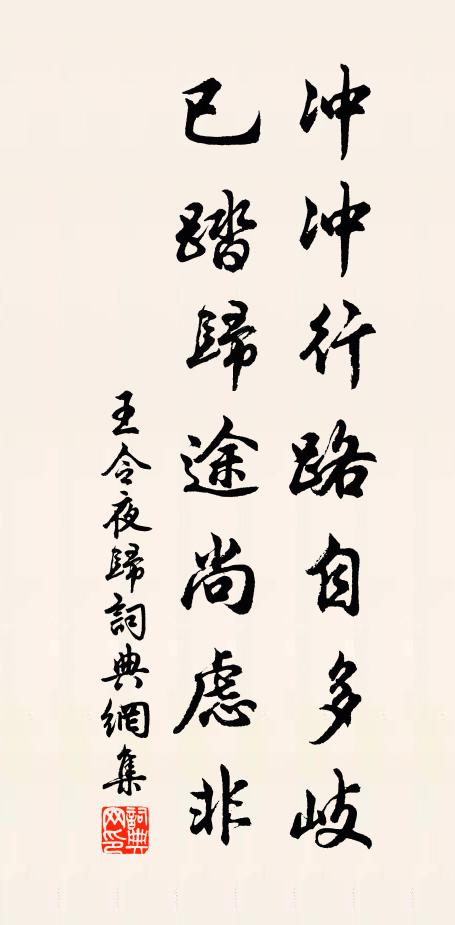 冲冲行路自多岐
已踏歸途尚慮非
王令夜歸詞典網集
詞典网印